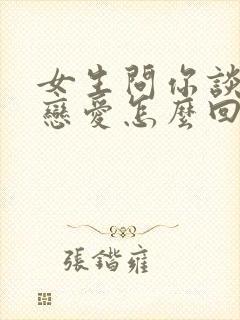 女生問你談
戀愛怎麼回
張鍇雍